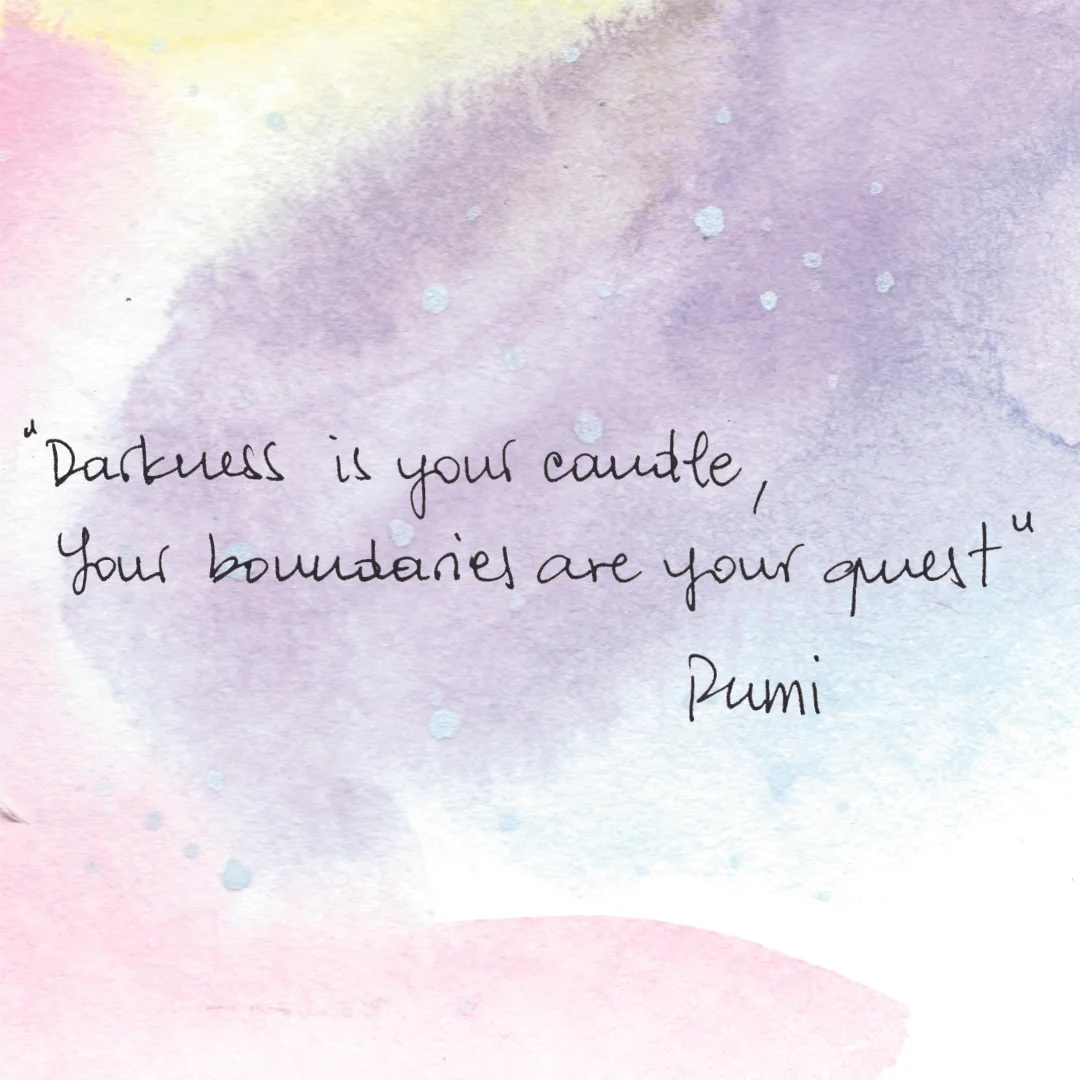 "Darkness is your candle,
Your boundaries are your quest"
Rumi